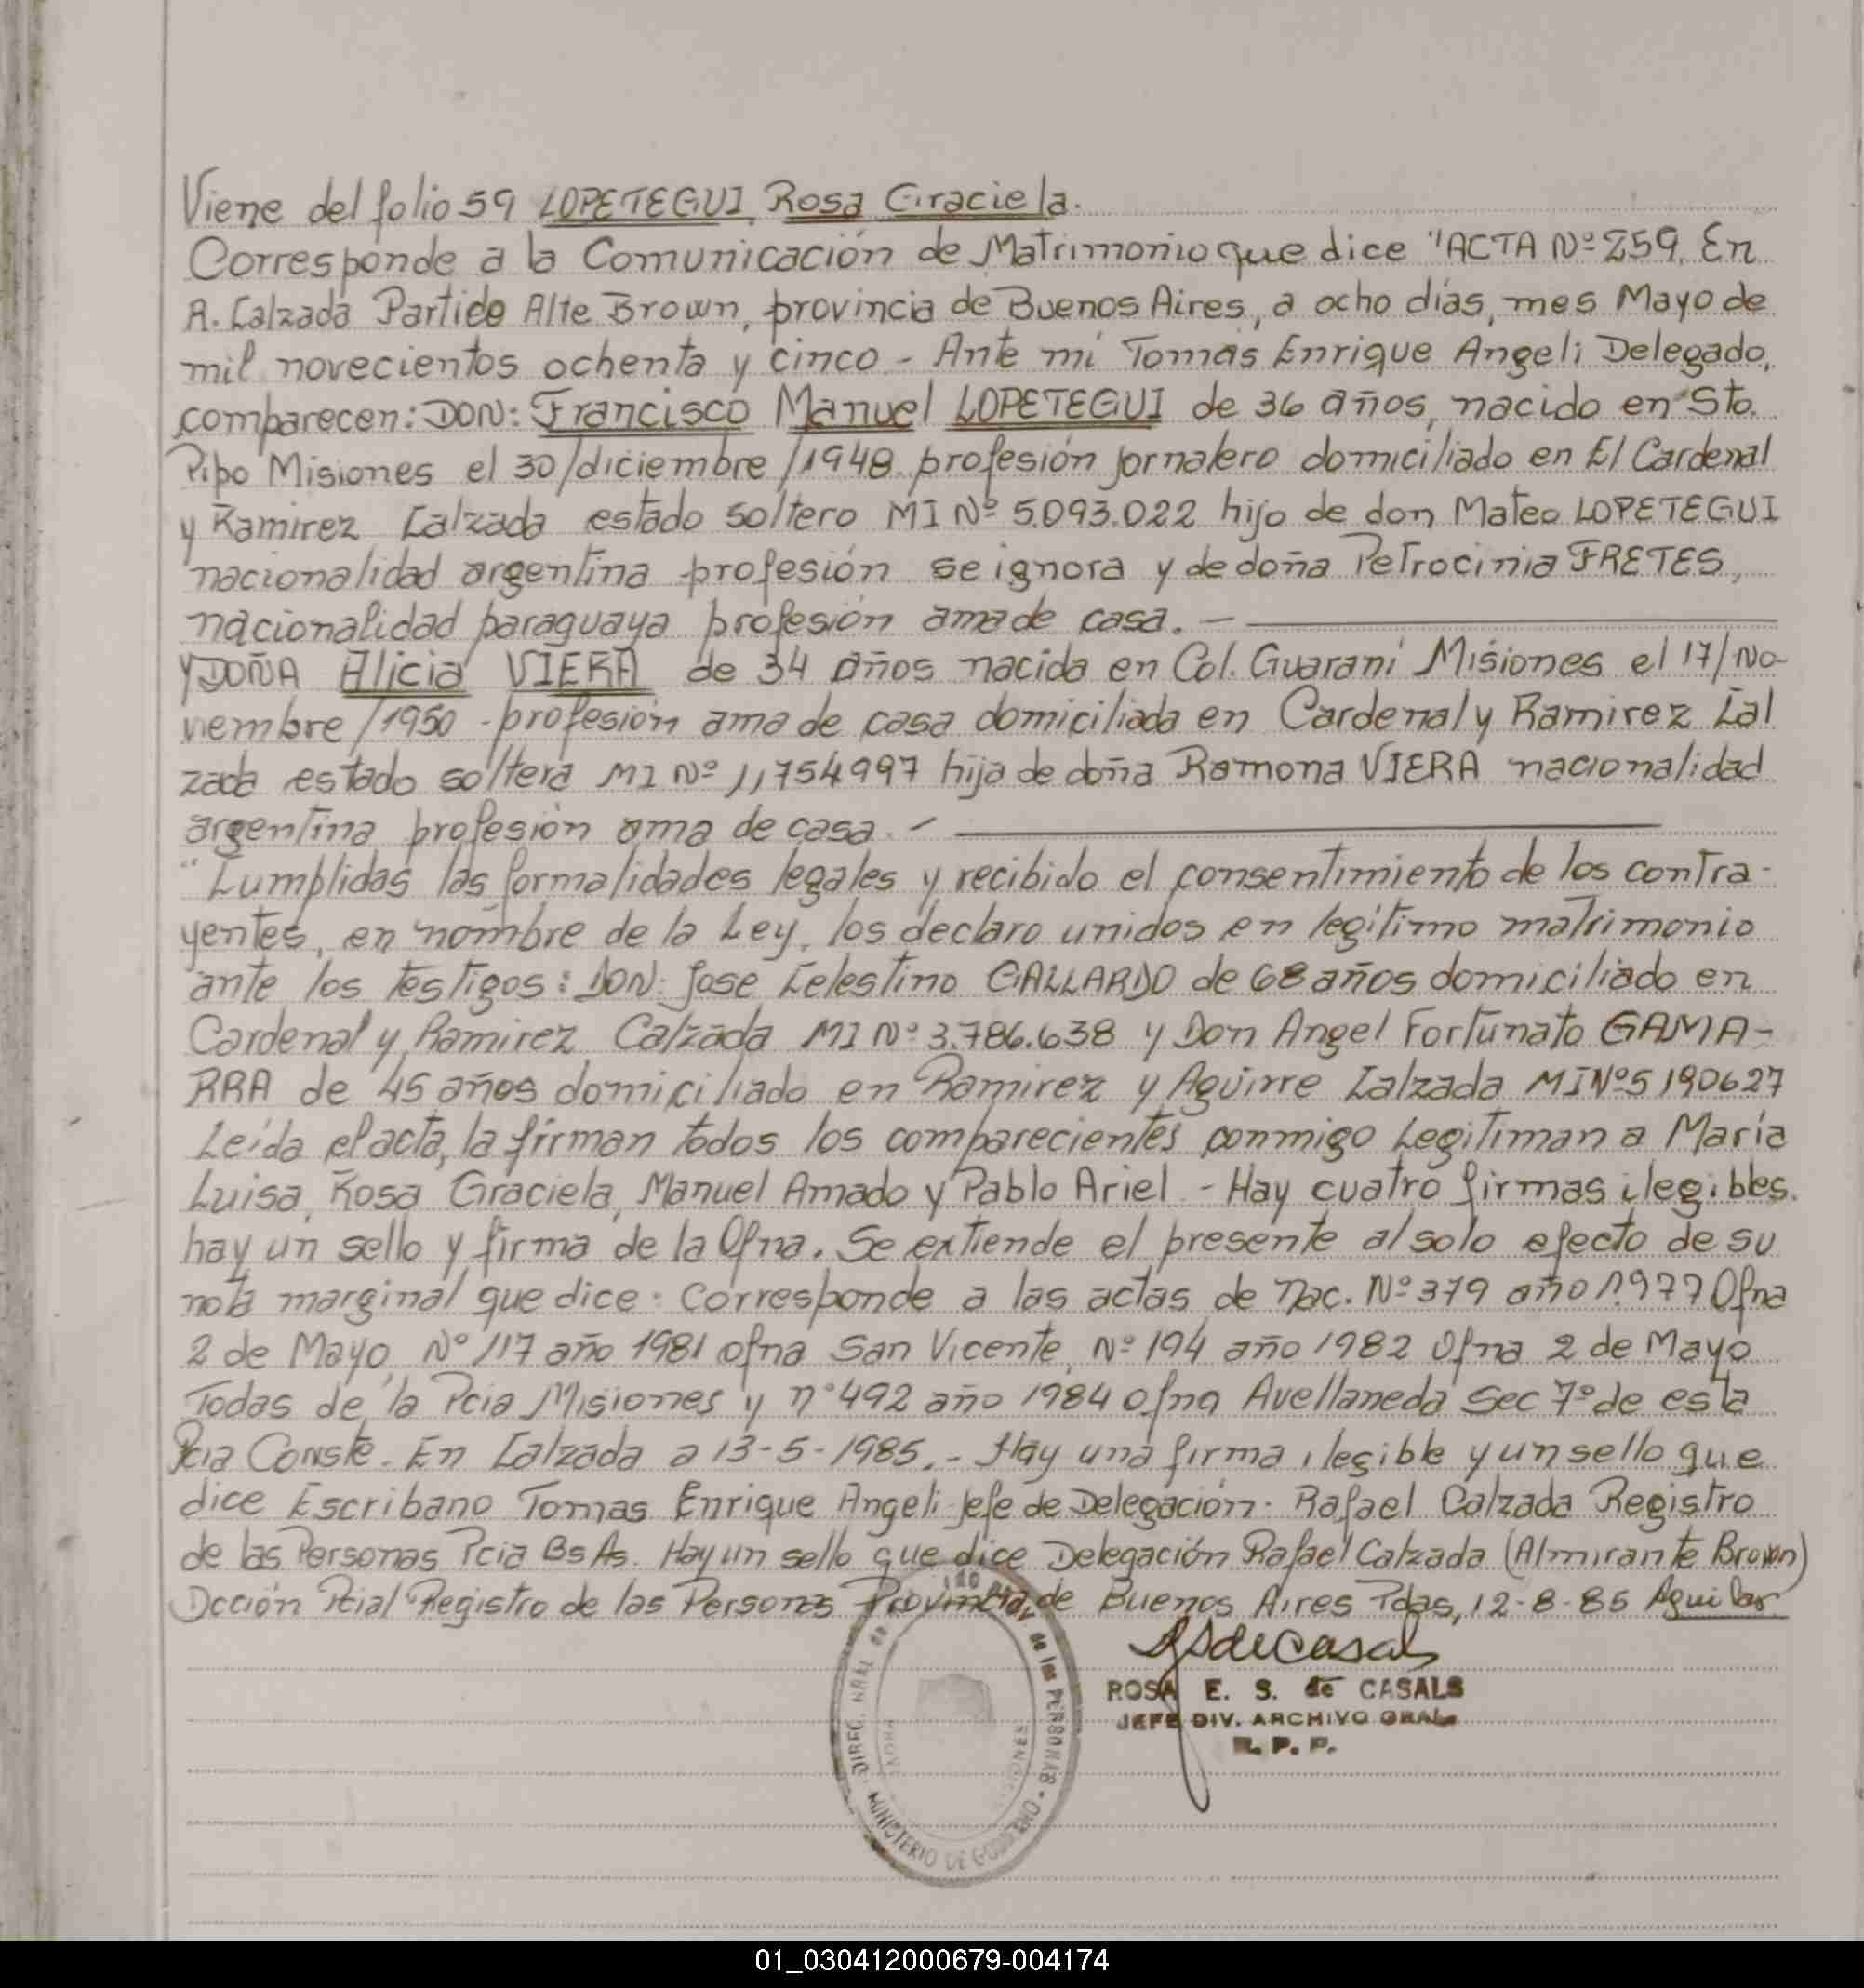 Viene del folio 59 LOPETEGUI, Rosa Graciela.
Corresponde a la Comunicación de Matrimonio que dice "ACTA Nº 259. En
R. Calzada Partido Alte Brown, provincia de Buenos Aires, a ocho días, mes Mayo de
mil novecientos ochenta y cinco - Ante mí Tomás Enrique Angeli Delegado,
comparecen: DON: Francisco Manuel LOPETEGUI de 36 años, nacido en Sto.
Pipo Misiones el 30/diciembre/1948 profesión jornalero domiciliado en El Cardenal
y Ramirez Calzada estado soltero MI Nº 5.093.022 hijo de don Mateo LOPETEGUI
nacionalidad argentina profesión se ignora y de doña Petrocinia FRETES,
nacionalidad paraguaya profesión ama de casa. -
Y DOÑA Alicia VIERA de 34 años nacida en Col. Guaraní Misiones el 17/No-
viembre/1950 - profesión ama de casa domiciliada en Cardenal y Ramirez Cal
zada estado soltera MI Nº 11,754997 hija de doña Ramona VIERA nacionalidad
argentina profesión ama de casa. -
"Cumplidas las formalidades legales y recibido el consentimiento de los contra-
yentes, en nombre de la Ley, los declaro unidos en legítimo matrimonio
ante los testigos: DON: Jose Celestino GALLARDO de 68 años domiciliado en
Cardenal y Ramirez Calzada MI Nº 3.786.638 y Don Angel Fortunato GAMA-
RRA de 45 años domiciliado en Ramirez y Aguirre Calzada MI Nº 5190627
Leída el acta, la firman todos los comparecientes conmigo Legitiman a María
Luisa, Rosa Graciela, Manuel Amado y Pablo Ariel - Hay cuatro firmas ilegibles.
hay un sello y firma de la Ofna. Se extiende el presente al solo efecto de su
nota marginal que dice: Corresponde a las actas de Nac. Nº 379 año 1.977 Ofna
2 de Mayo, Nº 117 año 1981 ofna San Vicente, Nº 194 año 1982 Ofna 2 de Mayo
Todas de la Pcia Misiones y nº 492 año 1984 ofna Avellaneda Sec 7º de esta
Pcia Conste. En Calzada a 13-5-1985. - Hay una firma ilegible y un sello que
dice Escribano Tomas Enrique Angeli Jefe de Delegación. Rafael Calzada Registro
de las Personas Pcia Bs As. Hay un sello que dice Delegación Rafael Calzada (Almirante Brown)
Dcción Pcial Registro de las Personas Provincia de Buenos Aires Pdas, 12-8-85 Aguilar
RSdeCasals
ROSA E. S. de CASALS
JEFE DIV. ARCHIVO GRAL.
R. P. P.
DIREC. GRAL de de las PERSONAS
MINISTERIO DE GOBIERNO
MISIONES
01_030412000679-004174